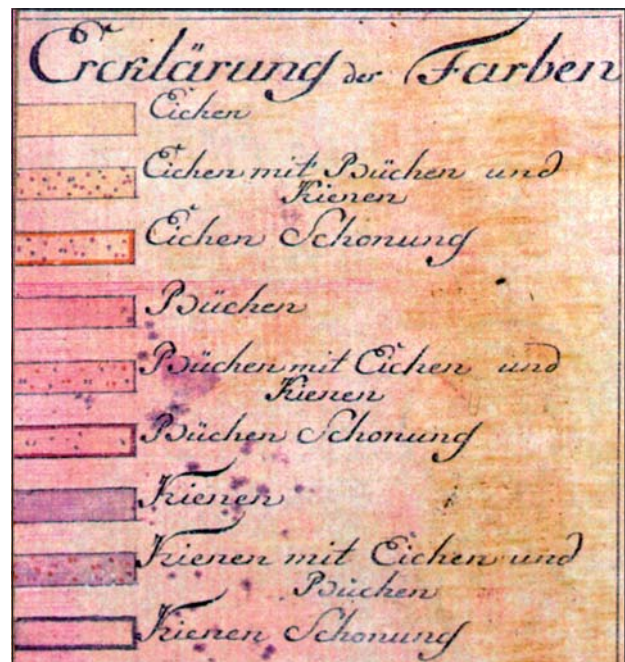 Ercklärung der Farben
Eichen
Eichen mit Büchen und
Kienen
Eichen Schonung
Büchen
Büchen mit Eichen und
Kienen
Büchen Schonung
Kienen
Kienen mit Eichen und
Büchen
Kienen Schonung